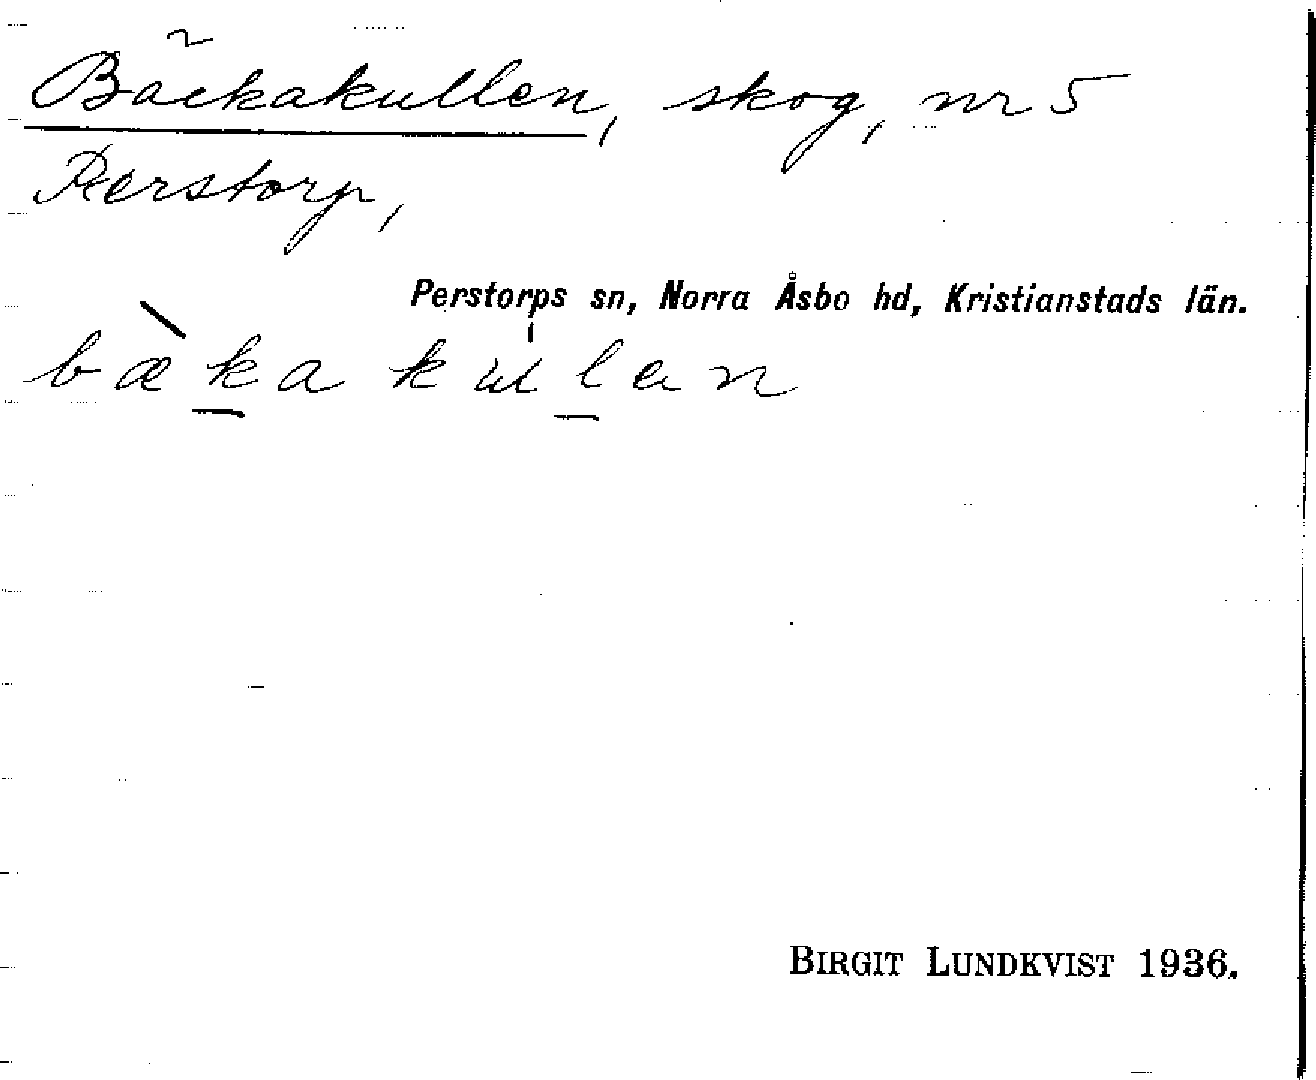 Bäckakullen, skog, nr 5
Perstorp,
Perstorps sn, Norra Åsbo hd, Kristianstads län.
bæ̀ka kulan
BIRGIT LUNDKVIST 1936.